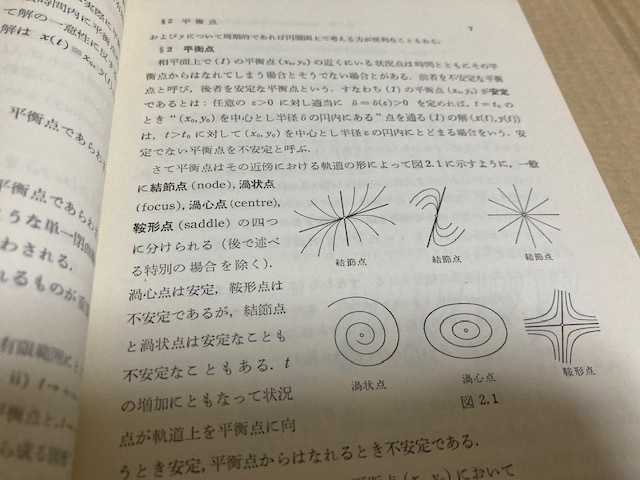 §2 平衡点
7
および y について周期的であれば円環面上で考える方が便利なこともある.
§2 平衡点
相平面上で (1) の平衡点 (x₀, y₀) の近くにいる状況点は時間とともにその平
衡点からはなれてしまう場合とそうでない場合とがある. 前者を不安定な平衡
点と呼び, 後者を安定な平衡点という. すなわち (1) の平衡点 (x₀, y₀) が安定
であるとは: 任意の ε>0 に対し適当に δ=δ(ε)>0 を定めれば, t=t₀ の
とき “(x₀, y₀) を中心とし半径 δ の円内にある” 点を通る (1) の解 (x(t), y(t))
は, t>t₀ に対して (x₀, y₀) を中心とし半径 ε の円内にとどまる場合をいう. 安
定でない平衡点を不安定と呼ぶ.
さて平衡点はその近傍における軌道の形によって図 2.1 に示すように, 一般
に結節点 (node), 渦状点
(focus), 渦心点 (centre),
鞍形点 (saddle) の四つ
に分けられる (後で述べ
る特別の場合を除く).
渦心点は安定, 鞍形点は
不安定であるが, 結節点
と渦状点は安定なことも
不安定なこともある. t
の増加にともなって状況
点が軌道上を平衡点に向
うとき安定, 平衡点からはなれるとき不安定である.
結節点
結節点
結節点
渦状点
渦心点
鞍形点
図 2.1
において
時間内に平
て解の一意性に反する
解は x(t)≡x₀, y(t)
平衡点であらわ
平衡点であらわ
うな単一閉曲
わされる.
れるものが
有限範囲に
ii) t→
平衡点と,
ら成る図